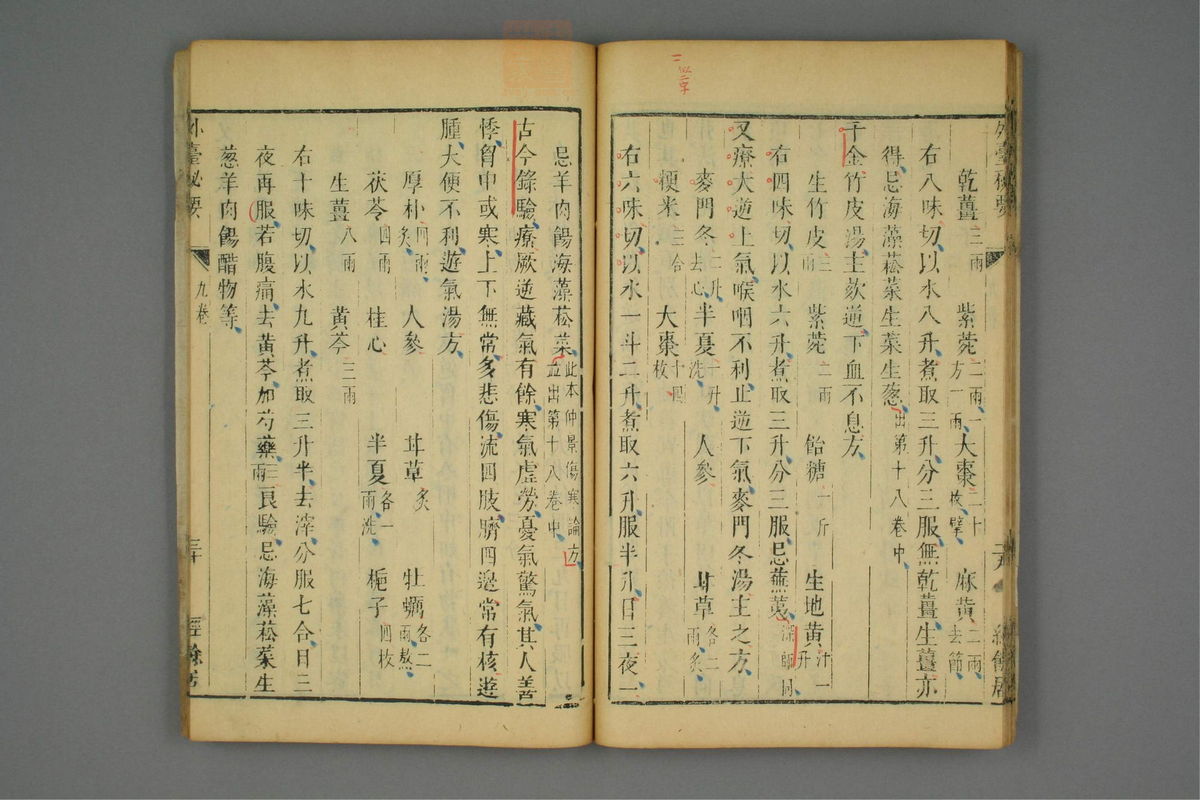 乾薑二兩 紫菀二兩一方一兩 大棗二十枚擘 麻黃二兩去節
右八味切以水八升煮取三升分三服無乾薑生薑亦
得忌海藻菘菜生菜生葱出第十八卷中
千金竹皮湯主欬逆下血不息方
生竹皮三兩 紫菀二兩 飴糖一斤 生地黃汁一升
右四味切以水六升煮取三升分三服忌蕪荑深師同
又療大逆上氣喉咽不利止逆下氣麥門冬湯主之方
麥門冬二升去心 半夏一升洗 人參 甘草各二兩炙
粳米三合 大棗十四枚
右六味切以水一斗二升煮取六升服半升日三夜一
忌羊肉餳海藻菘菜此本仲景傷寒論方並出第十八卷中
古今錄驗療厥逆藏氣有餘寒氣虛勞憂氣驚氣其人善
悸胷中或寒上下無常多悲傷流四肢臍四邊常有核遊
腫大便不利遊氣湯方
厚朴四兩炙 人參 甘草炙 牡蠣各二兩熬
茯苓四兩 桂心 半夏各一兩洗 梔子四枚
生薑八兩 黃芩三兩
右十味切以水九升煮取三升半去滓分服七合日三
夜再服若腹痛去黃芩加芍藥三兩良驗忌海藻菘菜生
葱羊肉餳醋物等
外臺秘要 九卷 三十 經餘居